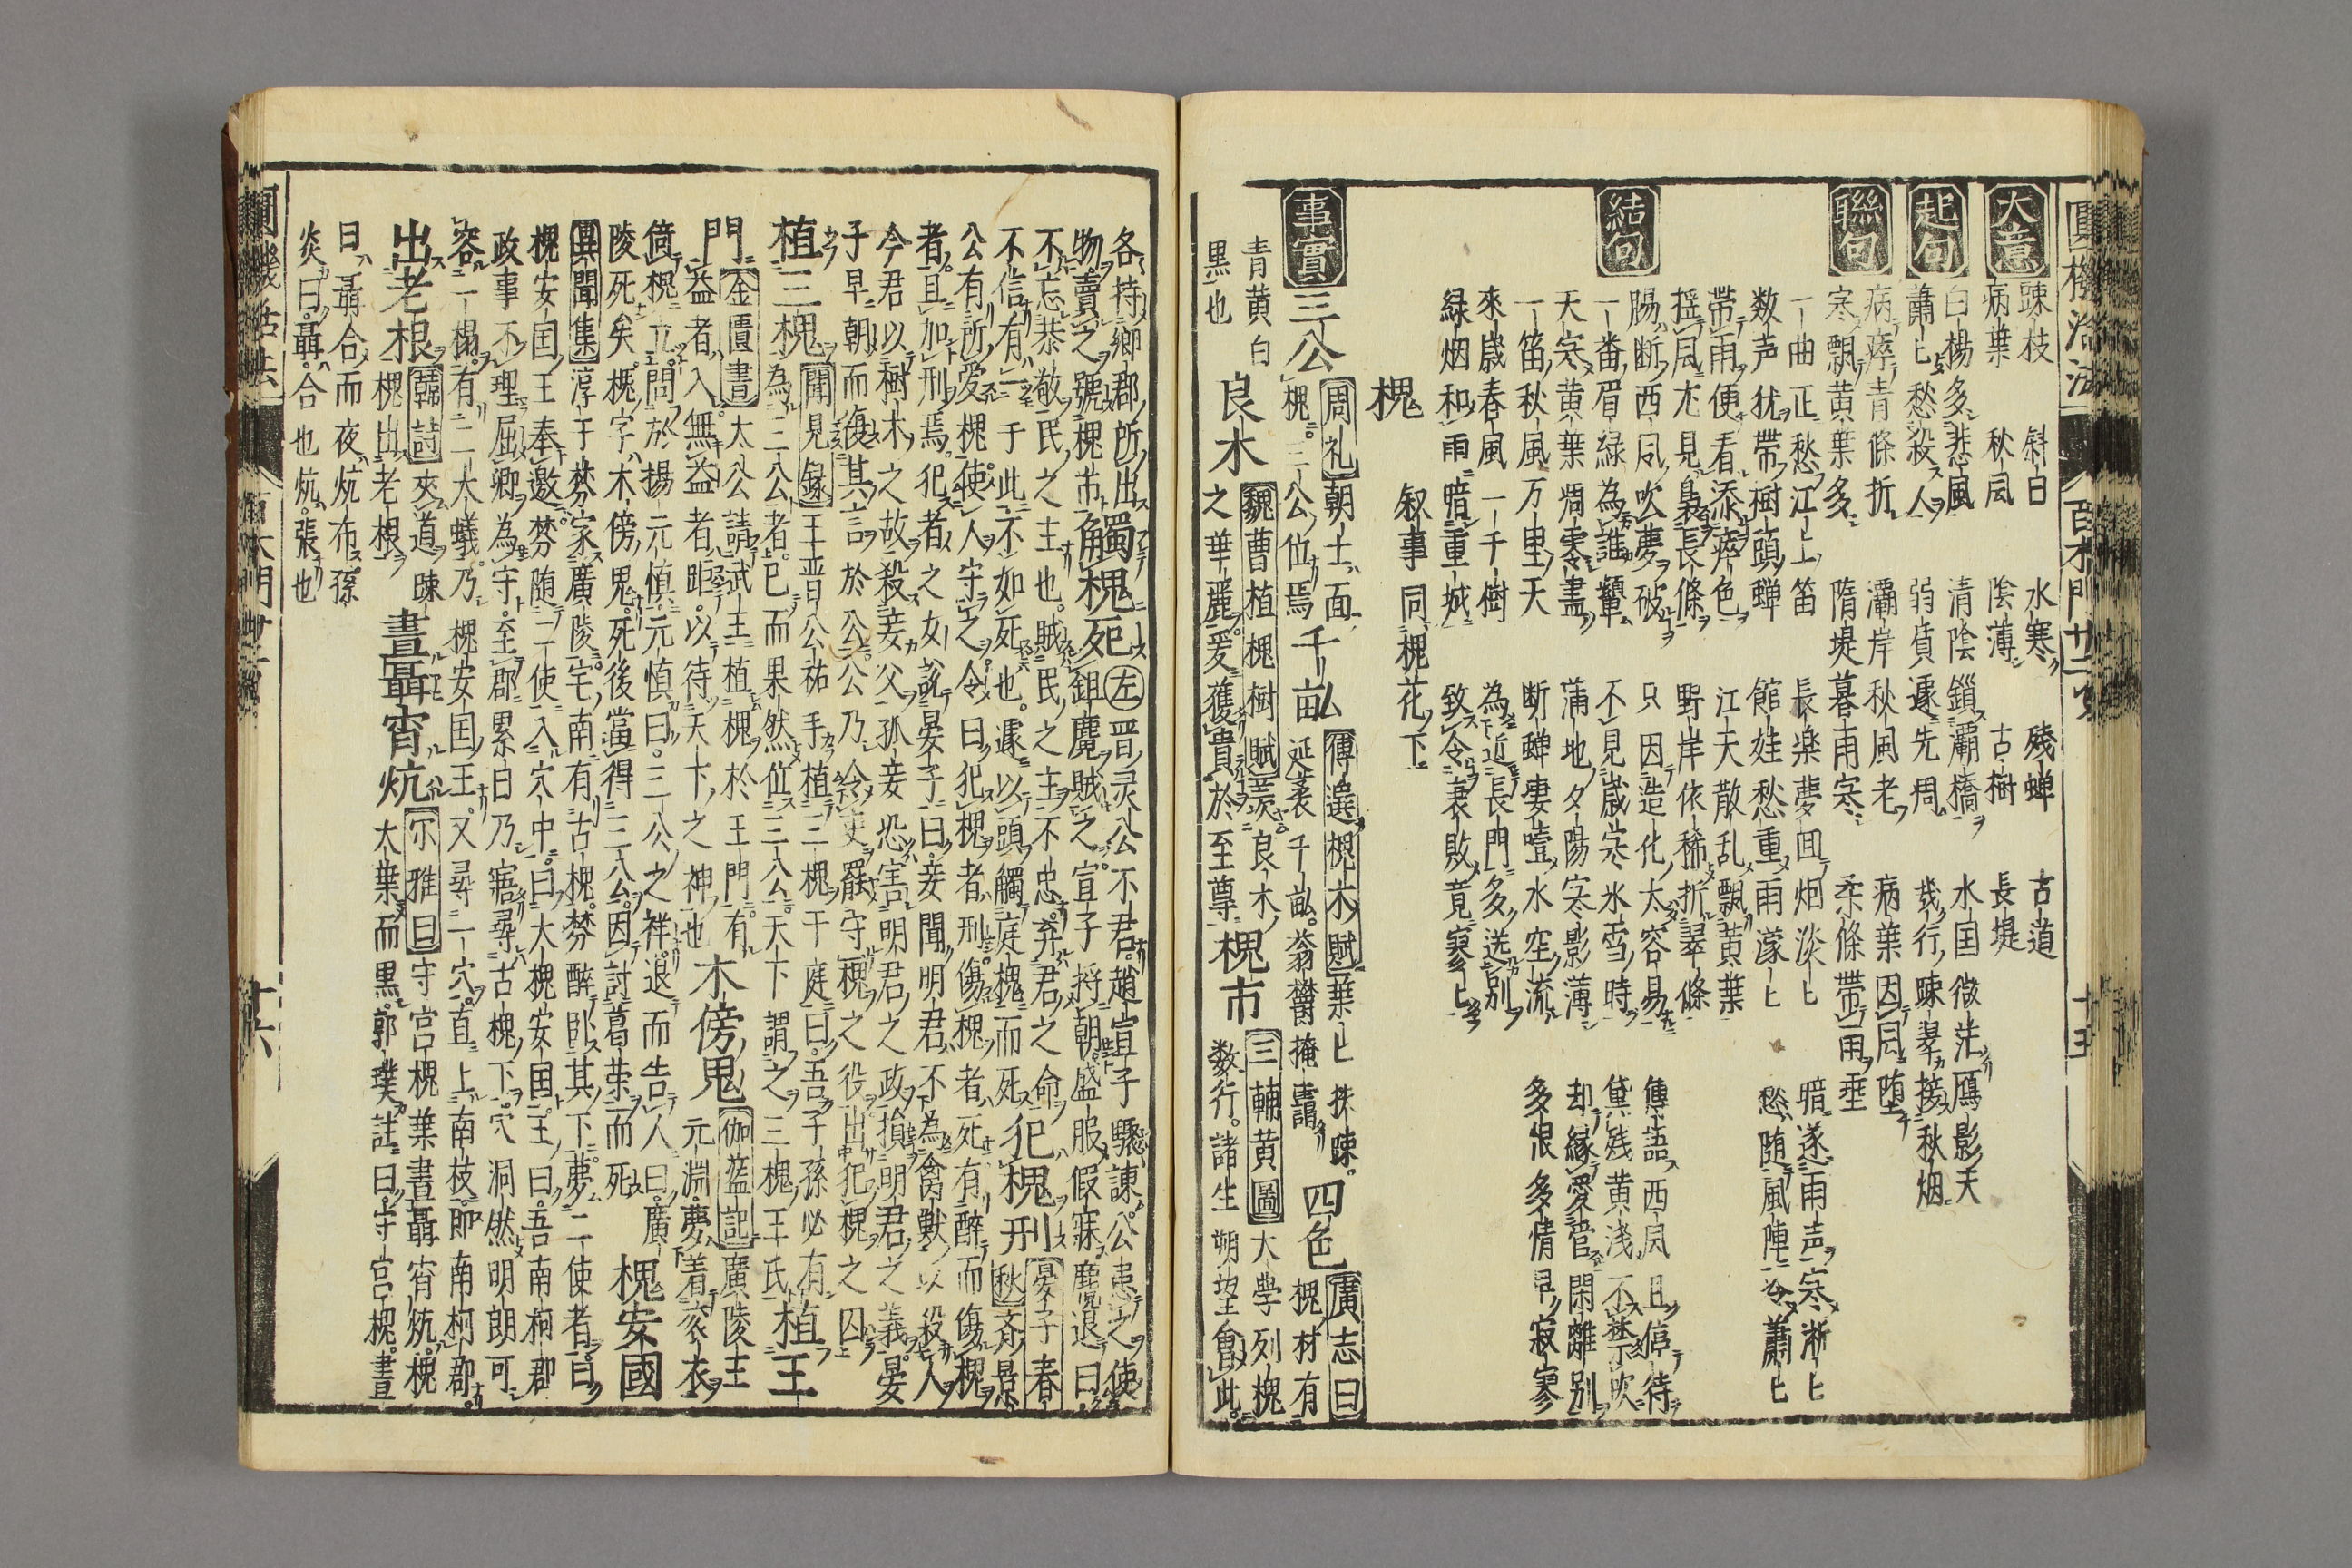 大意 踈枝 斜日 水寒 殘蝉 古道
病葉 秋风 陰薄 古樹 長堤
起句 白楊多悲風 清陰鎖灞橋 水国微茫鴈影天
蕭匕愁殺人 弱質遽先凋 幾行踈翠接秋烟
聯句 病瘁青條折 灞岸秋風老 病葉因风堕
寒飄黄葉多 隋堤暮雨寒 柔條帶雨垂
一曲正愁江上笛 長楽夢回烟淡匕 暗遂雨声寒淅匕
数声犹帶樹頭蝉 館娃愁重雨濛匕 愁随風陣冷蕭匕
帶雨便看添瘁色 江天散乱飄黄葉
揺风尤見裊長條 野岸依稀折翠條
結句 腸断西风吹夢破 只因造化太容易 傳語西风且停待
一畨眉緑為誰顰 不見歲寒氷雪時 黛残黄浅不禁吹
天寒黄葉凋零盡 蒲地夕陽寒影薄 却縁愛管閑離别
一笛秋風万里天 断蝉凄噎水空流 多恨多情早寂寥
來歲春風一千樹 為近長門多送别
緑烟和雨暗重城 致令衰敗竟寥匕
槐
叙事 同槐花下
事實 三公 周礼 朝士面
槐三公位焉 千畝 傅選槐木賦 葉匕扶踈
延袤千畝蓊欝掩靄 四色 廣志曰 槐材有
青黄白
黒也 良木 魏曹植槐樹賦 羨良木
之華麗爰獲貴於至尊 槐市 三輔黄圖 大學列槐
数行諸生朔望會此
各持鄉郡所出
物賣之號槐市 觸槐死 左 晋灵公不君趙宣子驟諌公患之使
鉏麑賊之宣子将朝盛服假寐麑退曰
不忘恭敬民之主也賊民之主不忠弃君之命
不信有一于此不如死也遽以頭觸庭槐而死 犯槐刑 晏子春
秋 斉景
公有所愛槐使人守之令曰犯槐者刑傷槐者死有醉而傷槐
者且加刑焉犯者之女說晏子曰妾聞明君不為禽獣以殺人
今君以樹木之故殺妾父孤妾恐害明君之政損明君之義晏
子早朝而復其言於公公乃令吏罷守槐之役出犯槐之囚
植三槐 聞見録 王晋公祐手植三槐于庭曰吾子孫必有
為三公者已而果然位三公天下謂之三槐王氏 植王
門 金匱書 太公請武王植槐於王門有
益者入無益者距以待天下之神也 木傍鬼 伽藍記 廣陵王
元淵夢着衮衣
倚槐立問於楊元慎元慎曰三公之祥退而告人曰廣
陵死矣槐字木傍鬼死後當得三公因討葛荣而死 槐安國
異聞集 淳于棼家廣陵宅南有古槐棼醉卧其下夢二使者曰
槐安国王奉邀棼随二使入穴中曰大槐安国王曰吾南柯郡
政事不理屈卿為守至郡累日乃寤尋古槐下穴洞然明朗可
容一榻有二大蟻乃槐安国王又尋一穴直上南枝即南柯郡
出老根 韓詩 夾道踈
槐出老根 晝聶宵炕 尓雅曰 守宮槐葉晝聶宵炕槐
大葉而黒郭璞註曰守宮槐晝
日聶合而夜炕布孫
炎曰聶合也炕張也